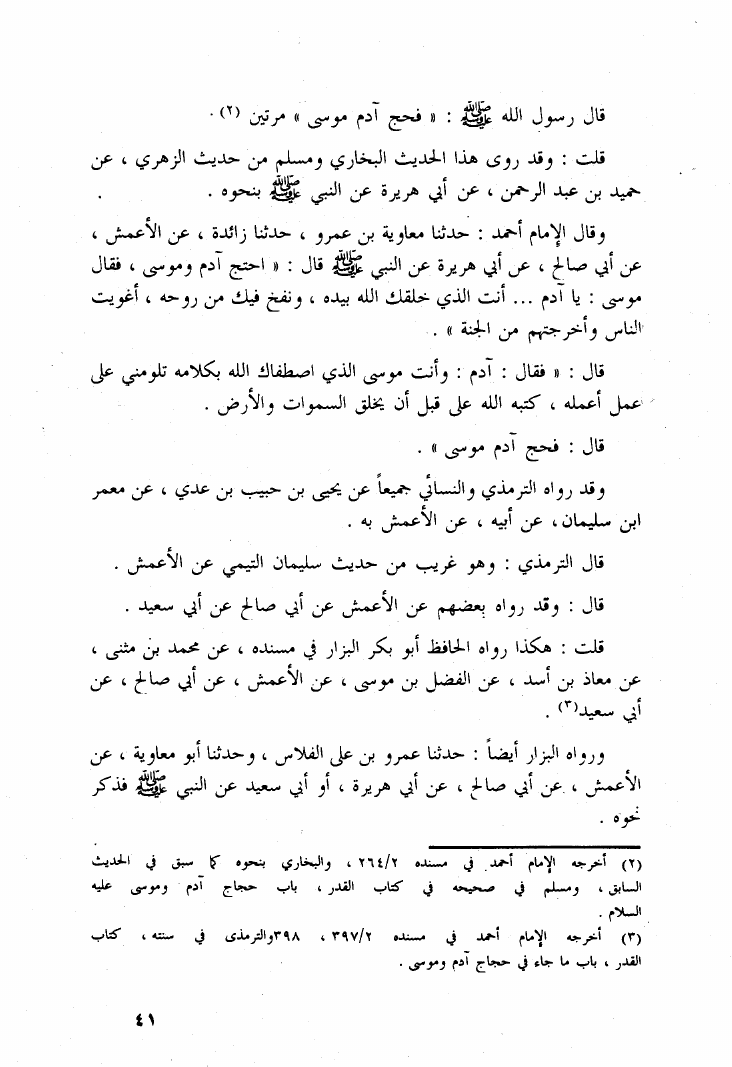 قال رسول الله ﷺ : « فحج آدم موسى » مرتين (٢) .
قلت : وقد روى هذا الحديث البخاري ومسلم من حديث الزهري ، عن
حميد بن عبد الرحمن ، عن أبي هريرة عن النبي ﷺ بنحوه .
وقال الإمام أحمد : حدثنا معاوية بن عمرو ، حدثنا زائدة ، عن الأعمش ،
عن أبي صالح ، عن أبي هريرة عن النبي ﷺ قال : « احتج آدم وموسى ، فقال
موسى : يا آدم ... أنت الذي خلقك الله بيده ، ونفخ فيك من روحه ، أغويت
الناس وأخرجتهم من الجنة » .
قال : « فقال : آدم : وأنت موسى الذي اصطفاك الله بكلامه تلومني على
عمل أعمله ، كتبه الله علي قبل أن يخلق السموات والأرض .
قال : فحج آدم موسى » .
وقد رواه الترمذي والنسائي جميعاً عن يحيى بن حبيب بن عدي ، عن معمر
ابن سليمان ، عن أبيه ، عن الأعمش به .
قال الترمذي : وهو غريب من حديث سليمان التيمي عن الأعمش .
قال : وقد رواه بعضهم عن الأعمش عن أبي صالح عن أبي سعيد .
قلت : هكذا رواه الحافظ أبو بكر البزار في مسنده ، عن محمد بن مثنى ،
عن معاذ بن أسد ، عن الفضل بن موسى ، عن الأعمش ، عن أبي صالح ، عن
أبي سعيد(٣) .
ورواه البزار أيضاً : حدثنا عمرو بن على الفلاس ، وحدثنا أبو معاوية ، عن
الأعمش ، عن أبي صالح ، عن أبي هريرة ، أو أبي سعيد عن النبي ﷺ فذكر
نحوه .
(٢) أخرجه الإمام أحمد في مسنده ٢٦٤/٢ ، والبخاري بنحوه كما سبق في الحديث
السابق ، ومسلم في صحيحه في كتاب القدر ، باب حجاج آدم وموسى عليه
السلام .
(٣) أخرجه الإمام أحمد في مسنده ٣٩٧/٢ ، ٣٩٨والترمذى في سنته ، كتاب
القدر ، باب ما جاء في حجاج آدم وموسى .
٤١